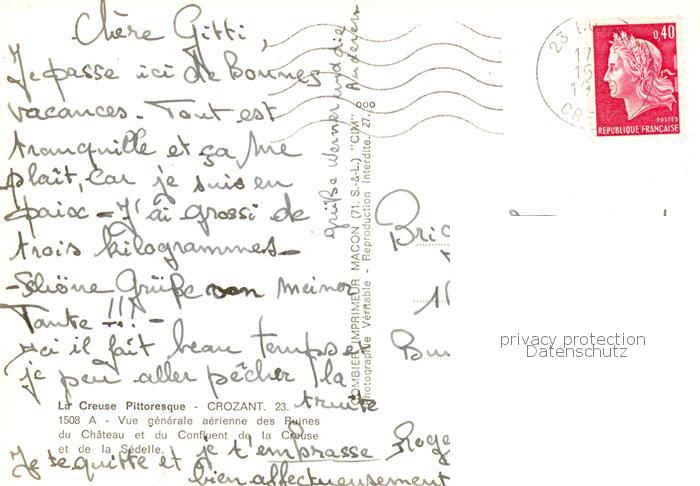 Chère Gitti,
Je passe ici de Bonnes
vacances - Tout est
tranquille et ça me
plaît, car je suis en
paix - J'ai grossi de
trois kilogrammes -
- Schöne Grüße von meiner
Tante !!! -
Ici il fait beau temps et
je peu aller pêcher la
truite
Je te quitte et je t'emprasse Roge
bien affectueusement
grüße Werner und die
Anderen
La Creuse Pittoresque - CROZANT. 23.
1508 A - Vue générale aérienne des Ruines
du Château et du Confluent de la Creuse
et de la Sédelle.
COMBIER IMPRIMEUR MACON (71. S.-&-L.) "CIM"
Photographie Véritable - Reproduction Interdite. 27.
Bric
Bu
23
17
16
19
CRE
0,40
POSTES
REPUBLIQUE FRANÇAISE
privacy protection
Datenschutz